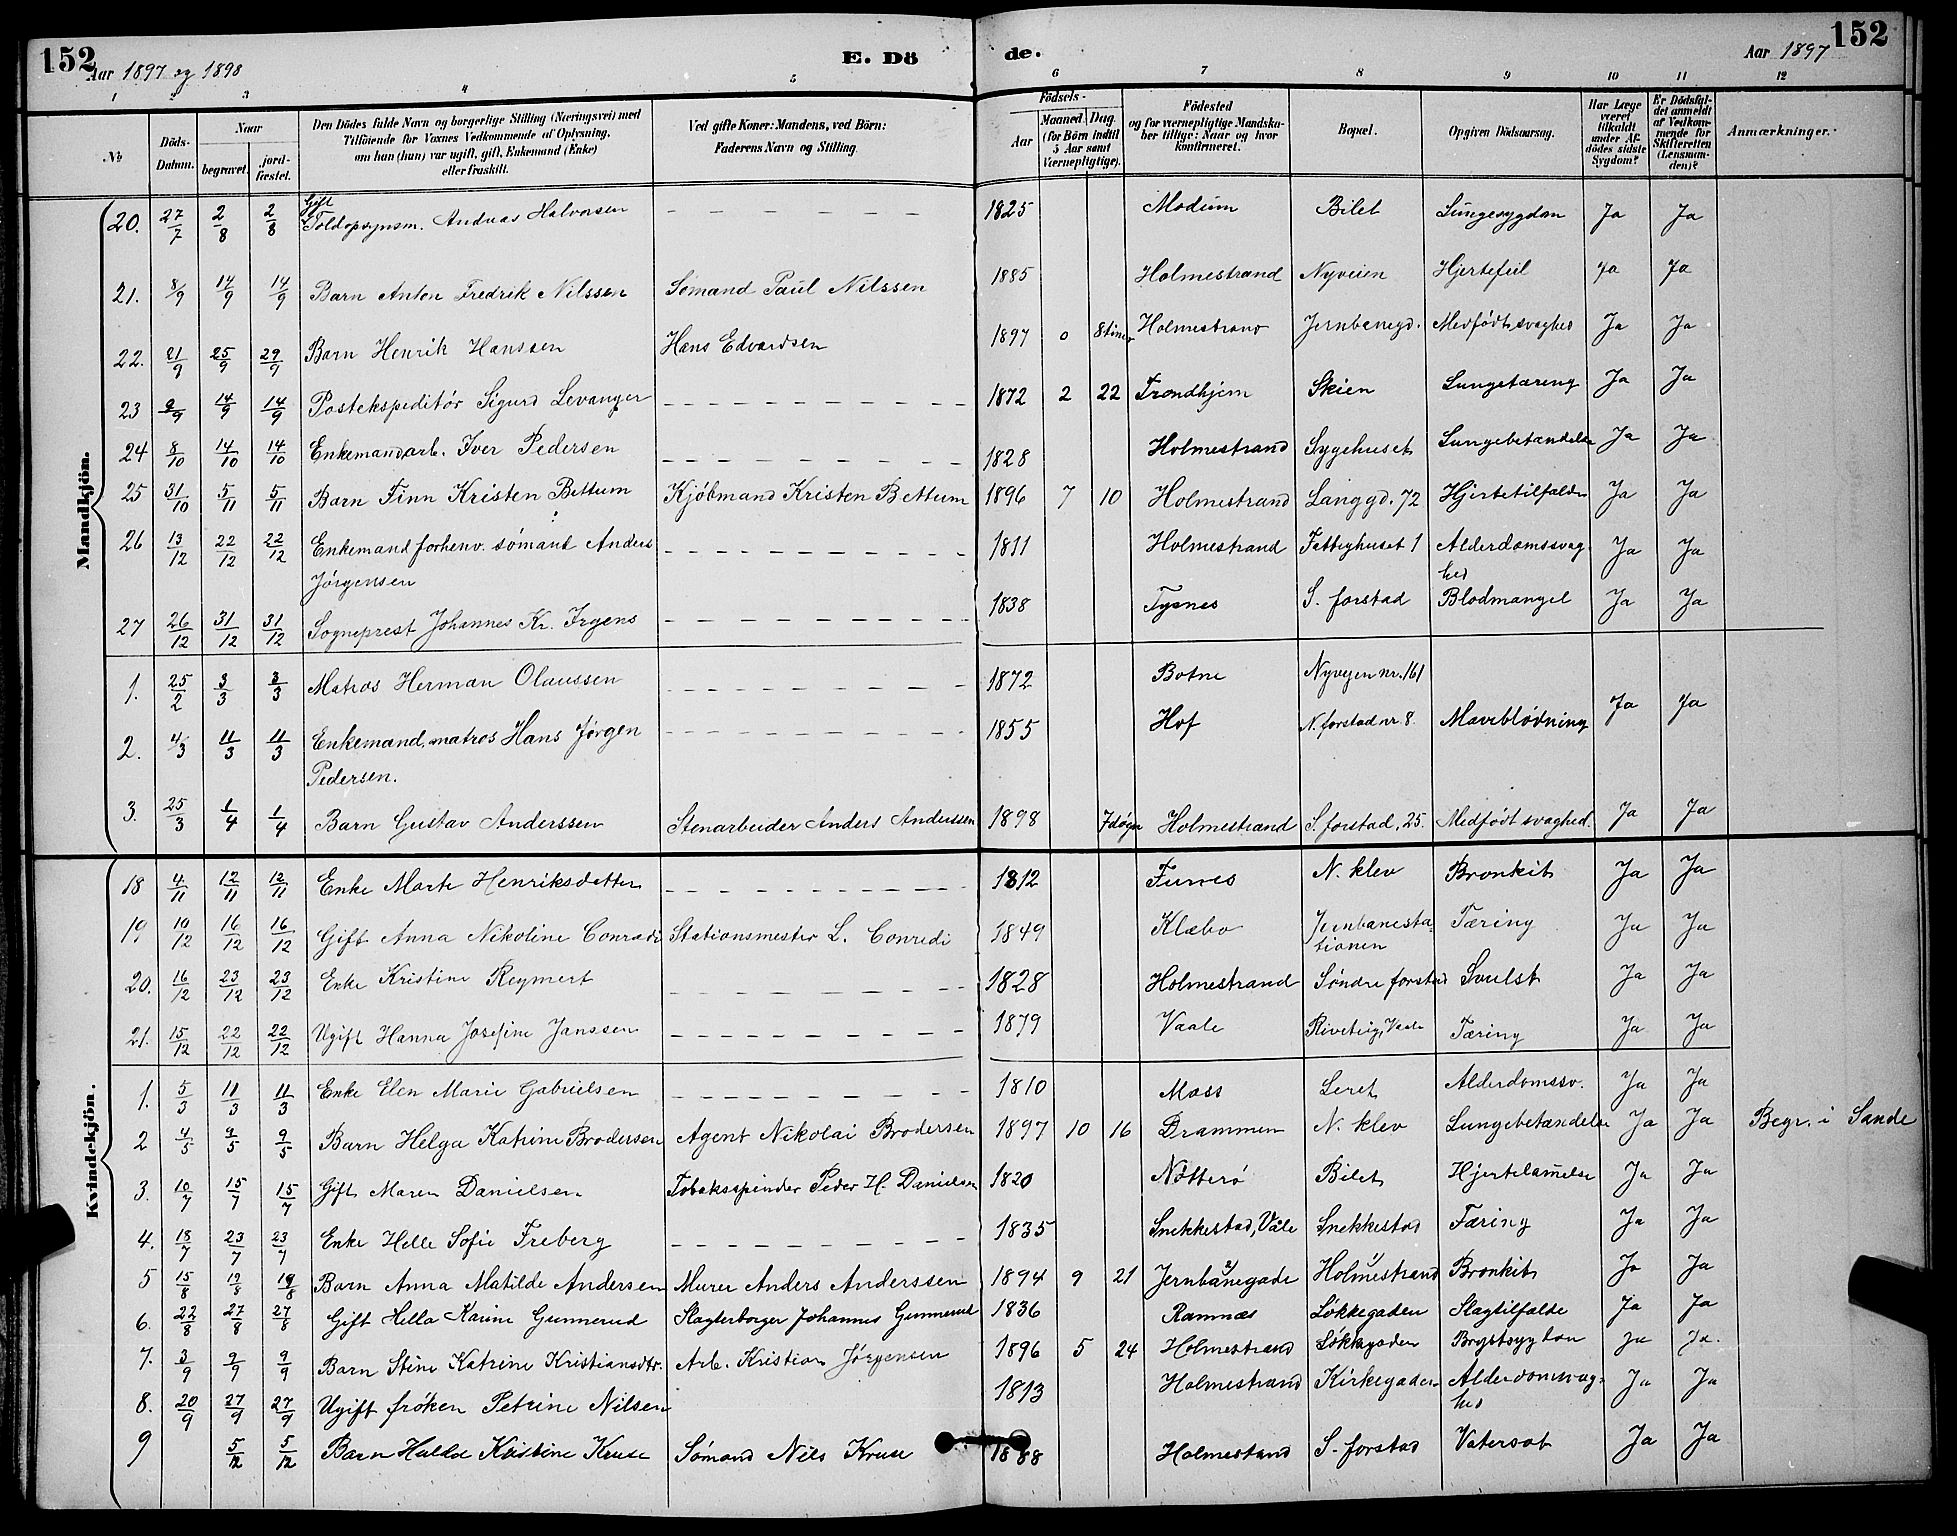 152
Aar 1897 og 1898
E. Dö
de.
Aar 1897
152
1 2 3 4 5 6 7 8 9 10 11 12
№
Döds-Datum.
Naar
begravet.
jord-fæstet.
Den Dödes fulde Navn og borgerlige Stilling (Næringsvei) med
Tilföiende for Voxnes Vedkommende af Oplysning,
om han (hun) var ugift, gift, Enkemand (Enke)
eller fraskilt.
Ved gifte Koner: Mandens, ved Börn:
Faderens Navn og Stilling.
Födsels-
Aar
Maaned. Dag.
(for Börn indtil
5 Aar samt
Værnepligtige).
Födested
og for værnepligtige Mandska-
ber tillige: Naar og hvor
konfirmeret.
Bopæl.
Opgiven Dödsaarsag.
Har Læge
været
tilkaldt
under Af-
dödes sidste
Sygdom?
Er Dödsfal-
det anmeldt
af Vedkom-
mende for
Skifteretten
(Lensman-
den)?
Anmærkninger.
Mandkjön.
20. 27/7 2/8 2/8 Gift Toldopsynsm. Andreas Halvorsen 1825 Modum Bilet Lungesygdom Ja Ja
21. 8/9 14/9 14/9 Barn Anton Fredrik Nilssen Sømand Paul Nilssen 1885 Holmestrand Nyveien Hjertefeil Ja Ja
22. 21/9 25/9 29/9 Barn Henrik Hanssen Hans Edvardsen 1897 0 8 timer Holmestrand Jernbanegd. Medfødt svaghed Ja Ja
23 9/9 14/9 14/9 Postekspeditør Sigurd Levanger 1872 2 22 Trondhjem Skien Lungetæring Ja Ja
24 8/10 14/10 14/10 Enkemand arb. Iver Pedersen 1828 Holmestrand Sygehuset Lungebetændelse Ja Ja
25 31/10 5/11 5/11 Barn Finn Kristen Bettum Kjøbmand Kristen Bettum 1896 7 10 Holmestrand Langgd. 72 Hjertetilfælde Ja Ja
26 13/12 22/12 22/12 Enkemand forhenv. sømand Anders
Jörgensen 1811 Holmestrand Fattighuset 1 Alderdomssvag-
hed Ja Ja
27 26/12 31/12 31/12 Sogneprest Johannes Kr. Irgens 1838 Tysnes S. forstad Blodmangel Ja Ja
1. 25/2 3/3 3/3 Matros Herman Olaussen 1872 Botne Nyvejen nr. 161
2. 4/3 11/3 11/3 Enkemand, matros Hans Jørgen
Pedersen. 1855 Hof N. forstad nr. 8. Maveblødning Ja Ja
3. 25/3 1/4 1/4 Barn Gustav Anderssen Stenarbeider Anders Anderssen 1898 7 døgn Holmestrand S. forstad, 25. Medfødt svaghed. Ja Ja
Kvindekjön.
18 4/11 12/11 12/11 Enke Marte Henriksdatter 1812 N. klev Bronkit Ja Ja
19 10/12 16/12 16/12 Gift Anna Nikoline Conradi Stationsmester L. Conradi 1849 Klæbo Jernbanesta-
tionen Tæring Ja Ja
20. 16/12 23/12 23/12 Enke Kristine Reymert 1828 Holmestrand Søndre forstad Svulst Ja Ja
21. 15/12 22/12 22/12 Ugift Hanna Josefine Janssen 1879 Vaale Vaale Tæring Ja Ja
1. 5/3 11/3 11/3 Enke Elen Marie Gabrielsen 1810 Moss Leret Alderdomssv. Ja Ja
2 4/5 9/5 9/5 Barn Helga Katrine Brodersen Agent Nikolai Brodersen 1897 10 16 Drammen N. klev Lungebetændelse Ja Ja Begr. i Sande
3. 10/7 15/7 15/7 Gift Maren Danielsen Tobaksspinder Peder H. Danielsen 1820 Nøtterø Bilet Hjertelammelse Ja Ja
4. 18/7 23/7 23/7 Enke Helle Sofie Freberg 1835 Snekkestad, Våle Snekkestad Tæring Ja Ja
5 15/8 19/8 19/8 Barn Anna Matilde Andersen Murer Anders Anderssen 1894 9 21 Jernbanegade Holmestrand Bronkit Ja Ja
6. 22/8 27/8 27/8 Gift Hella Karine Gunnerud Slagterborger Johannes Gunnerud 1836 Ramnæs Løkkegaden Slagtilfælde Ja Ja
7. 3/9 9/9 9/9 Barn Stine Katrine Kristiansdtr. Arb. Kristian Jørgensen 1896 5 24 Holmestrand Løkkegaden Brystsygdom Ja Ja.
8. 20/9 27/9 27/9 Ugift frøken Petrine Nilsen 1813 Holmestrand Kirkegaden Alderdomssvag-
hed Ja Ja
9 5/12 5/12 Barn Kristine Kruse Sømand Nils Kruse 1888 Holmestrand S. forstad Vatersot Ja Ja